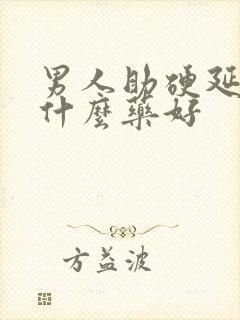 男人助硬延
什麼藥好
方益波